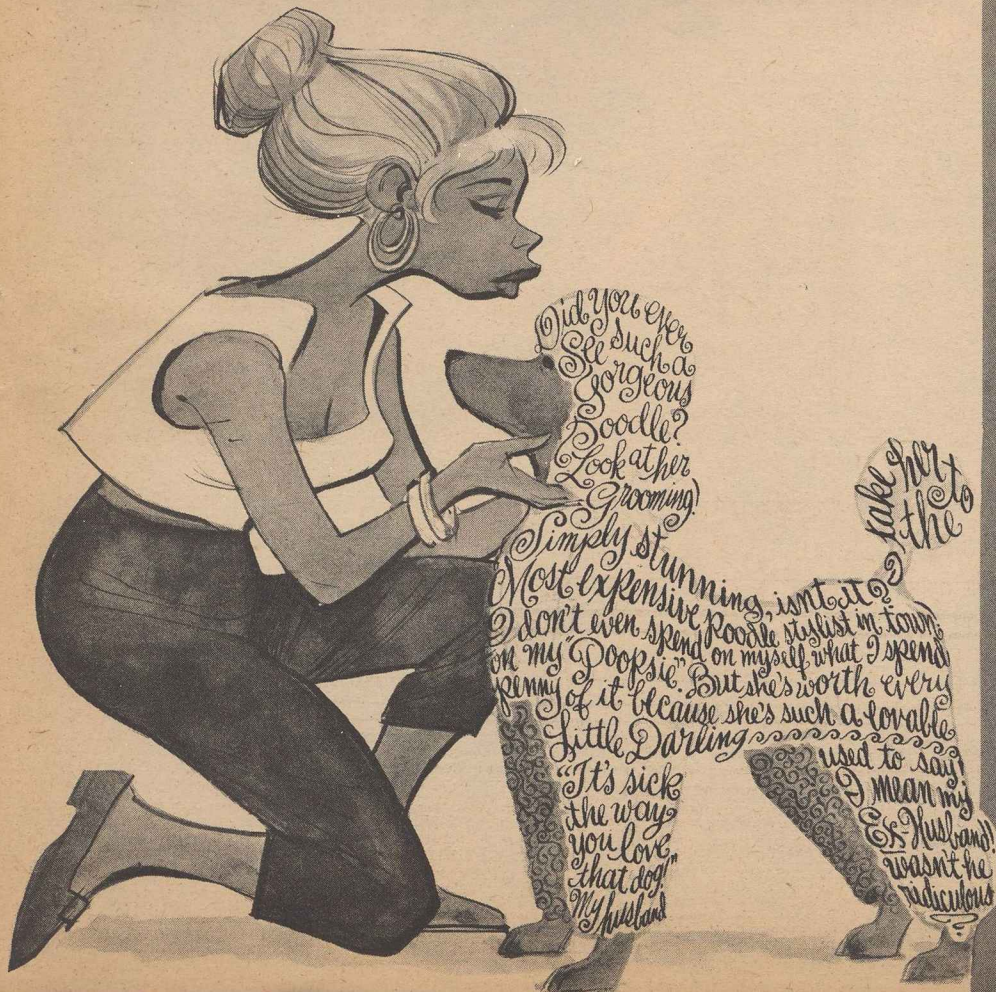 Did you ever
See such a
Gorgeous
Poodle?
Look at her
Grooming!
Simply stunning, isnt it?
I
take her to
the
Most expensive Poodle stylist in town
I don't even spend on myself what I spend
on my "Poopsie". But she's worth every
penny of it because she's such a lovable
Little Darling
"It's sick
the way
you love
that dog!"
My husband
used to say!
I mean my
Ex-Husband!
wasn't he
ridiculous